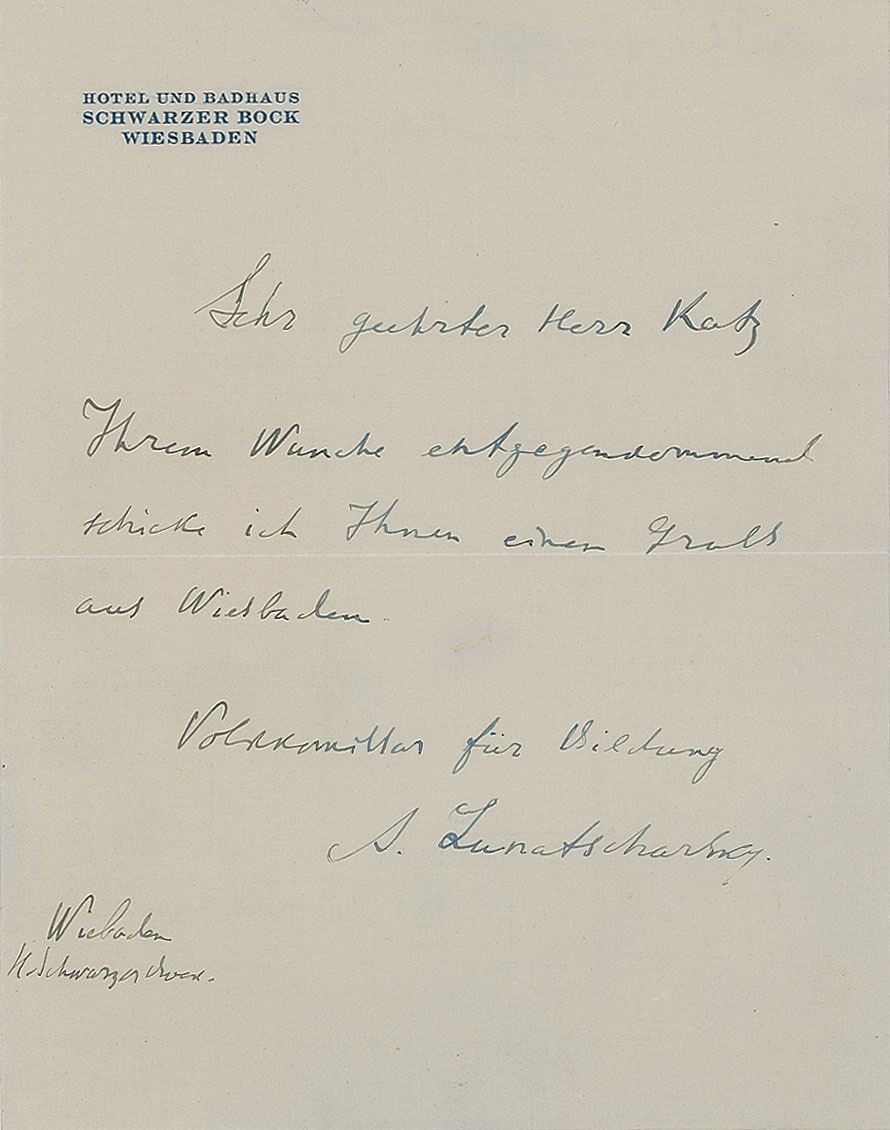 HOTEL UND BADHAUS
SCHWARZER BOCK
WIESBADEN
Sehr geehrter Herr Katz
Ihrem Wunche entgegenkommend
schicke ich Ihnen einen Gruss
aus Wiesbaden.
Volkskomissar für Bildung
A. Lunatscharsky.
Wiesbaden
H. Schwarzer Bock.